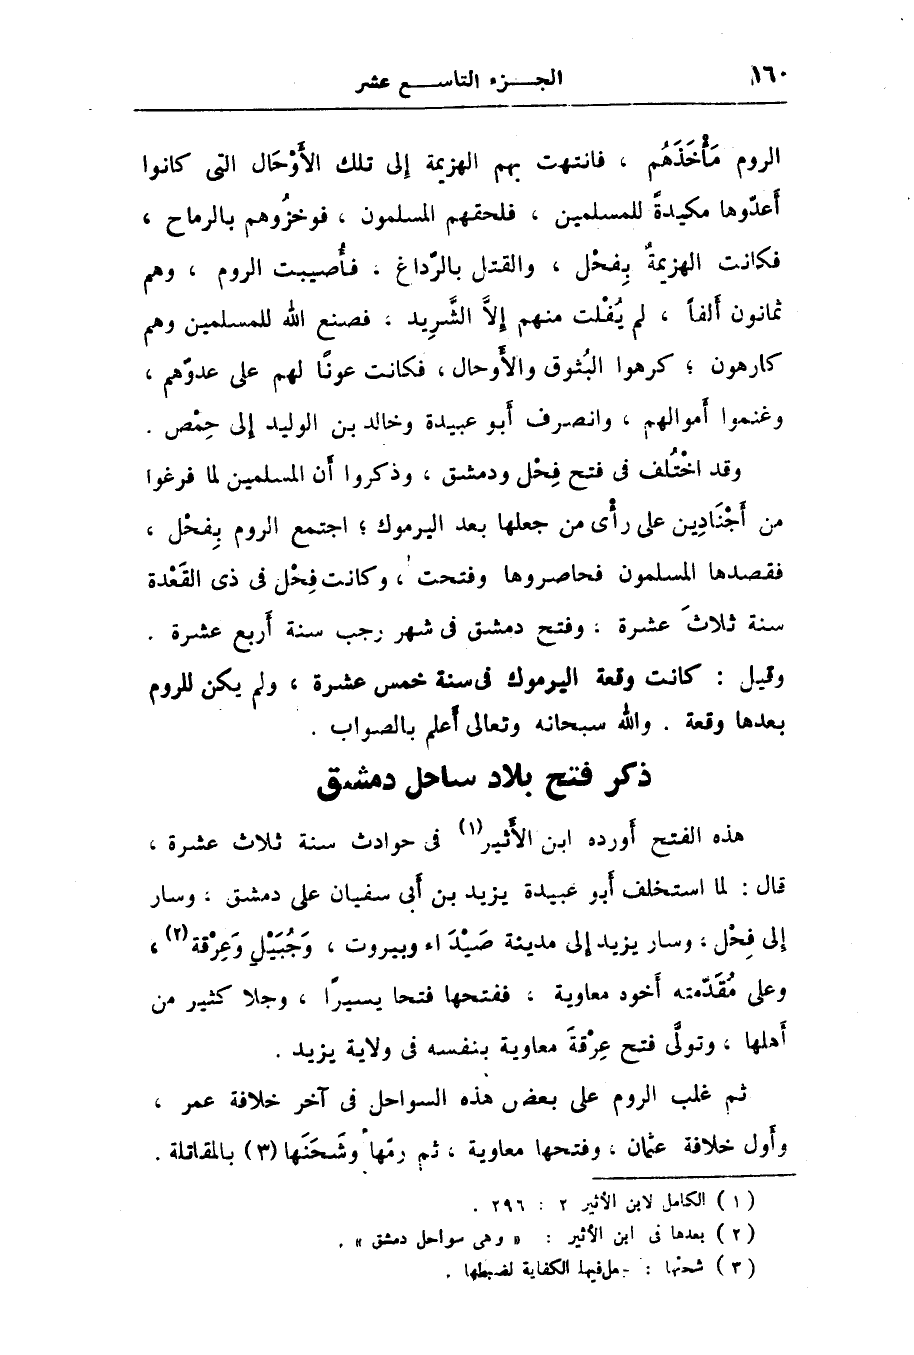 ١٦٠
الجـــزء التاســـع عشر
الروم مَأْخَذَهُم ، فانتهت بهم الهزيمة إلى تلك الأَوْحَال التى كانوا
أَعدّوها مكيدةً للمسلمين ، فلحقهم المسلمون ، فوخزُوهم بالرماح ،
فكانت الهزيمةُ بِفحْل ، والقتل بالرّداغ ، فأُصيبت الروم ، وهم
ثمانون أَلفاً ، لم يُفْلت منهم إلاَّ الشَّرِيد ، فصنع الله للمسلمين وهم
كارهون ؛ كرهوا البُثوق والأَوحال ، فكانت عونًا لهم على عدوّهم ،
وغنموا أَموالهم ، وانصرف أَبو عبيدة وخالد بن الوليد إلى حِمْص .
وقد اخْتُلف فى فتح فِحْل ودمشق ، وذكروا أَن المسلمين لما فرغوا
من أَجْنَادِين على رأْى من جعلها بعد اليرموك ؛ اجتمع الروم بِفحْل ،
فقصدها المسلمون فحاصروها وفتحت ، وكانت فِحْل فى ذى القَعْدة
سنة ثلاثَ عشرة ، وفتح دمشق فى شهر رجب سنة أَربع عشرة .
وقيل : كانت وقعة اليرموك فى سنة خمس عشرة ، ولم يكن للروم
بعدها وقعة . والله سبحانه وتعالى أَعلم بالصواب .
ذكر فتح بلاد ساحل دمشق
هذه الفتح أَورده ابن الأَثير(١) فى حوادث سنة ثلاث عشرة ،
قال : لما استخلف أَبو عبيدة يزيد بن أَبى سفيان على دمشق ، وسار
إلى فِحْل ، وسار يزيد إلى مدينة صَيْدَاء وبيروت ، وَجُبَيْل وَعِرْقة(٢) ،
وعلى مُقَدّمته أَخوه معاوية ، ففتحها فتحا يسيرًا ، وجلا كثير من
أَهلها ، وتولَّى فتح عِرْقةَ معاوية بنفسه فى ولاية يزيد .
ثم غلب الروم على بعض هذه السواحل فى آخر خلافة عمر ،
وأَول خلافة عثمان ، وفتحها معاوية ، ثم رمّها وشَحَنَها (٣) بالمقاتلة .
(١) الكامل لابن الأثير ٢ : ٢٩٦ .
(٢) بعدها فى ابن الأثير : « وهى سواحل دمشق » .
(٣) شحنها : جعل فيها الكفاية لضبطها .